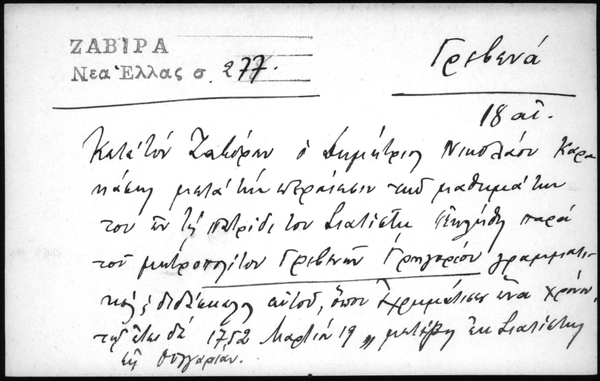 ΖΑΒΙΡΑ
Νεα Ἑλλας σ. 277.
Γρεβενά
18 αἰ.
Κατὰ τὸν Ζαβίραν ὁ Δημήτριος Νικολάου Καρα
κάσης μετὰ τὴν περαίωσιν τῶν μαθημάτων
του ἐν τῇ πατρίδι του Σιατίστῃ ἐκλήθη παρὰ
τοῦ μητροπολίτου Γρεβενῶν Γρηγορίου γραμματι
κὸς ἢ διδάσκαλος αὐτοῦ, ὅπου ἐχρημάτισεν ἕνα χρόνον,
τῷ ἔτει δὲ 1752 Μαρτίου 19 „ μετέβη ἐκ Σιατίστης
εἰς Οὐγγαρίαν.